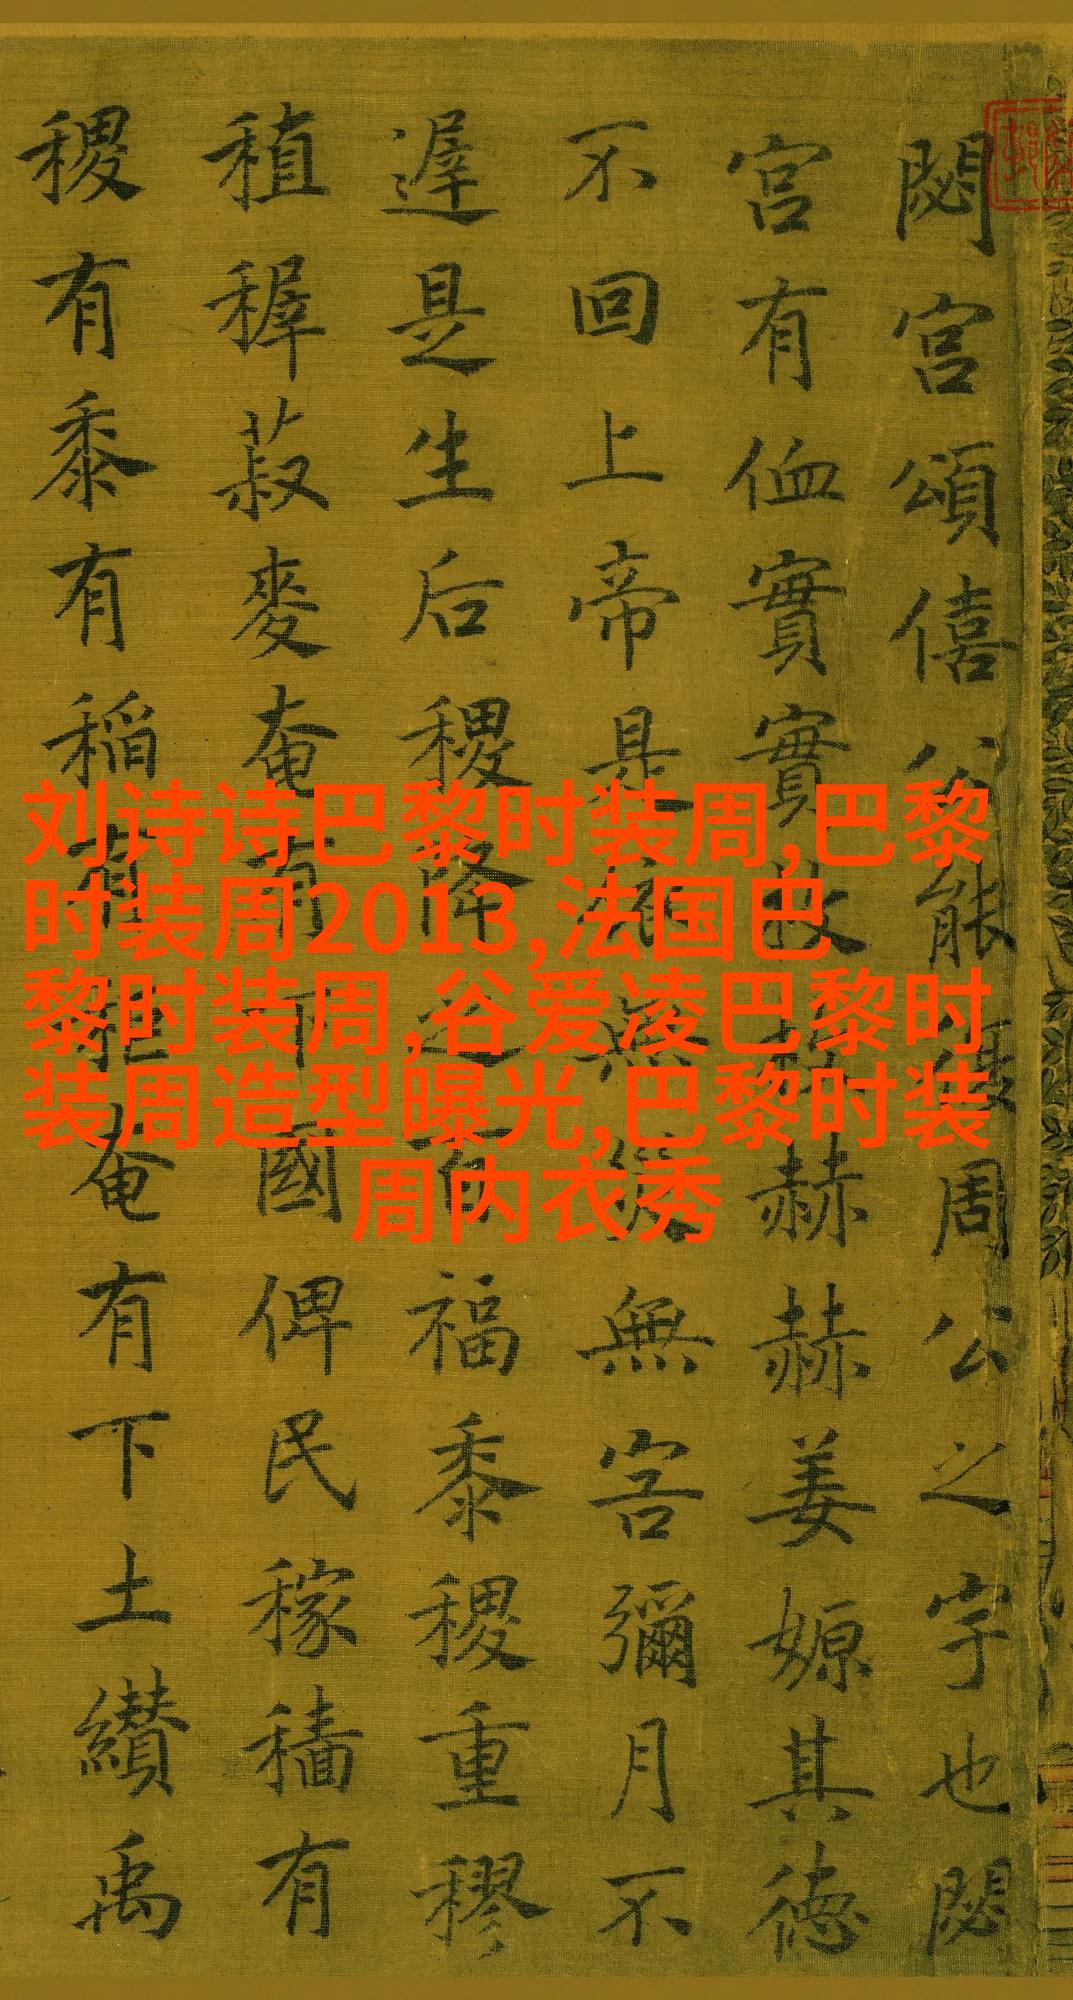 閟宮頌僖公能復周公之宇也閟
宮有侐實實枚枚赫赫姜嫄其德
不回上帝是依無災無害彌月不
遟是生后稷降之百福黍稷重穋
稙稺菽麥奄有下國俾民稼穡有
稷有黍有稻有秬奄有下土纘禹
刘诗诗巴黎时装周,巴黎
时装周2013,法国巴
黎时装周,谷爱凌巴黎时
装周造型曝光,巴黎时装
周内衣秀